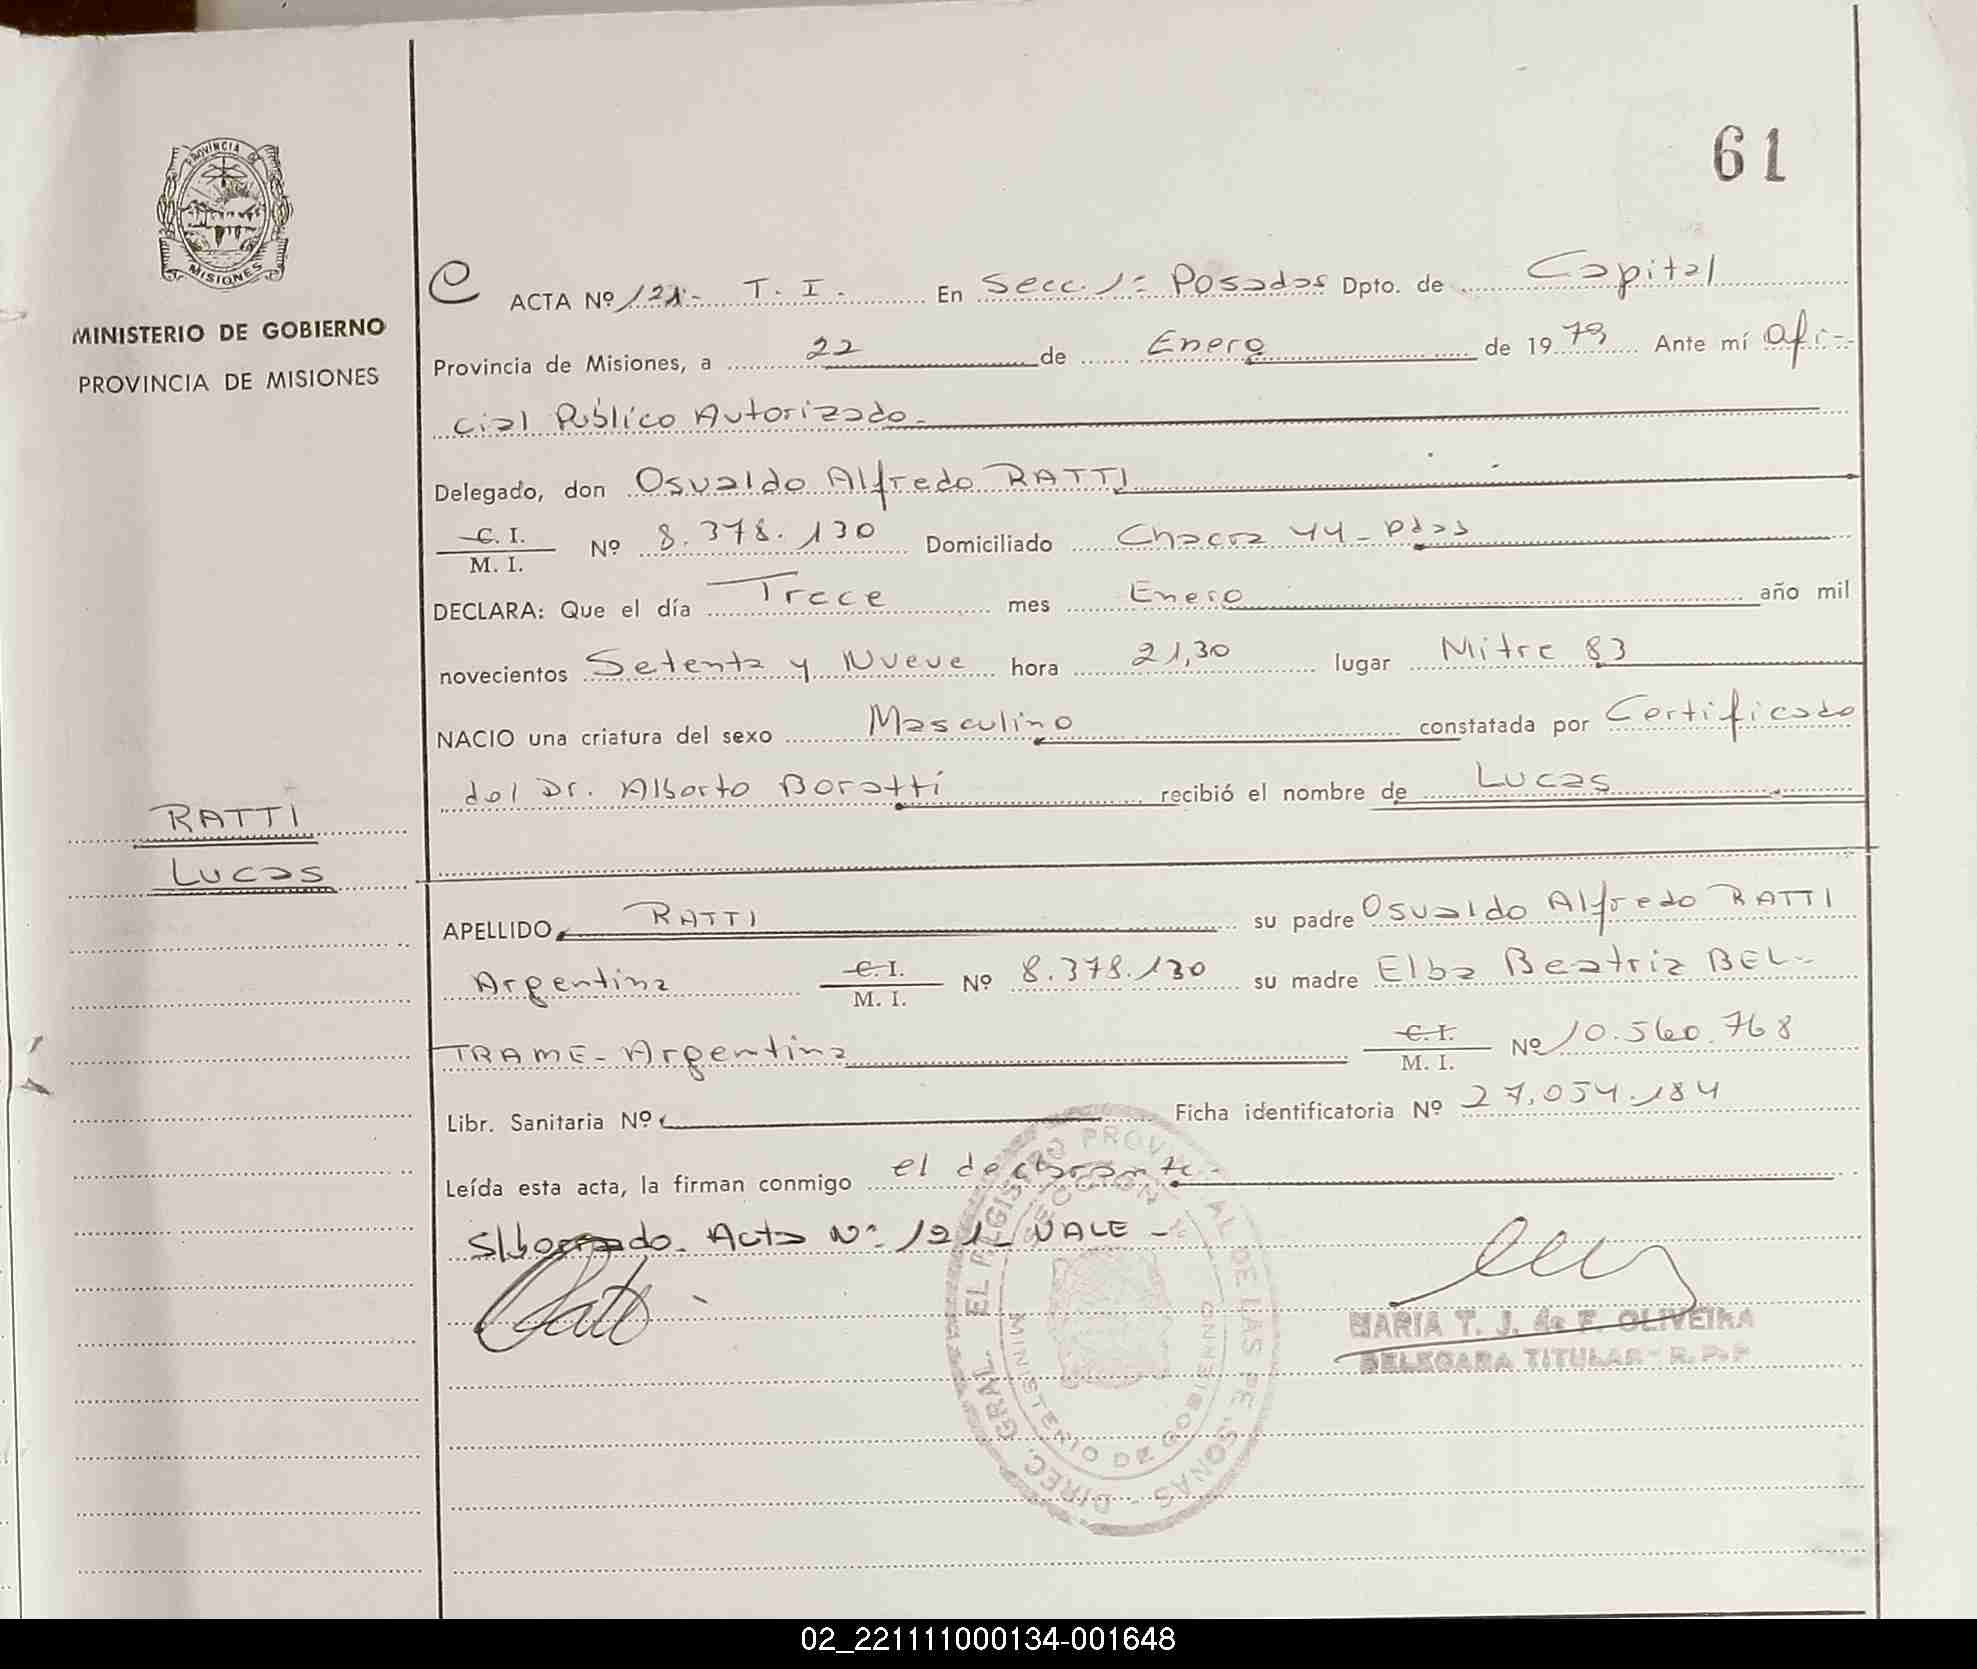 61
PROVINCIA DE
MISIONES
MINISTERIO DE GOBIERNO
PROVINCIA DE MISIONES
RATTI
Lucas
C ACTA Nº 121- T. I. En Secc. 1ª Posadas Dpto. de Capital
Provincia de Misiones, a 22 de Enero de 1979 Ante mí Ofi-
cial Público Autorizado-
Delegado, don Osvaldo Alfredo RATTI
C. I.
M. I. Nº 8.378.130 Domiciliado Chacra 44- Pdas
DECLARA: Que el día Trece mes Enero año mil
novecientos Setenta y Nueve hora 21,30 lugar Mitre 83
NACIO una criatura del sexo Masculino constatada por Certificado
del Dr. Alberto Boratti recibió el nombre de Lucas
APELLIDO RATTI su padre Osvaldo Alfredo RATTI
Argentina C. I.
M. I. Nº 8.378.130 su madre Elba Beatriz BEL-
TRAME- Argentina C. I.
M. I. Nº 10.560.768
Libr. Sanitaria Nº Ficha identificatoria Nº 27.054.184
Leída esta acta, la firman conmigo el declarante-
S/borrado. Acta Nº 121- VALE-
Ratti
MARIA T. J. de F. OLIVEIRA
DELEGADA TITULAR - R. P. P
DIREC. GRAL. EL REGISTRO PROVINCIAL DE LAS PERSONAS -
SECCION 1ª
MINISTERIO DE GOBIERNO
02_221111000134-001648